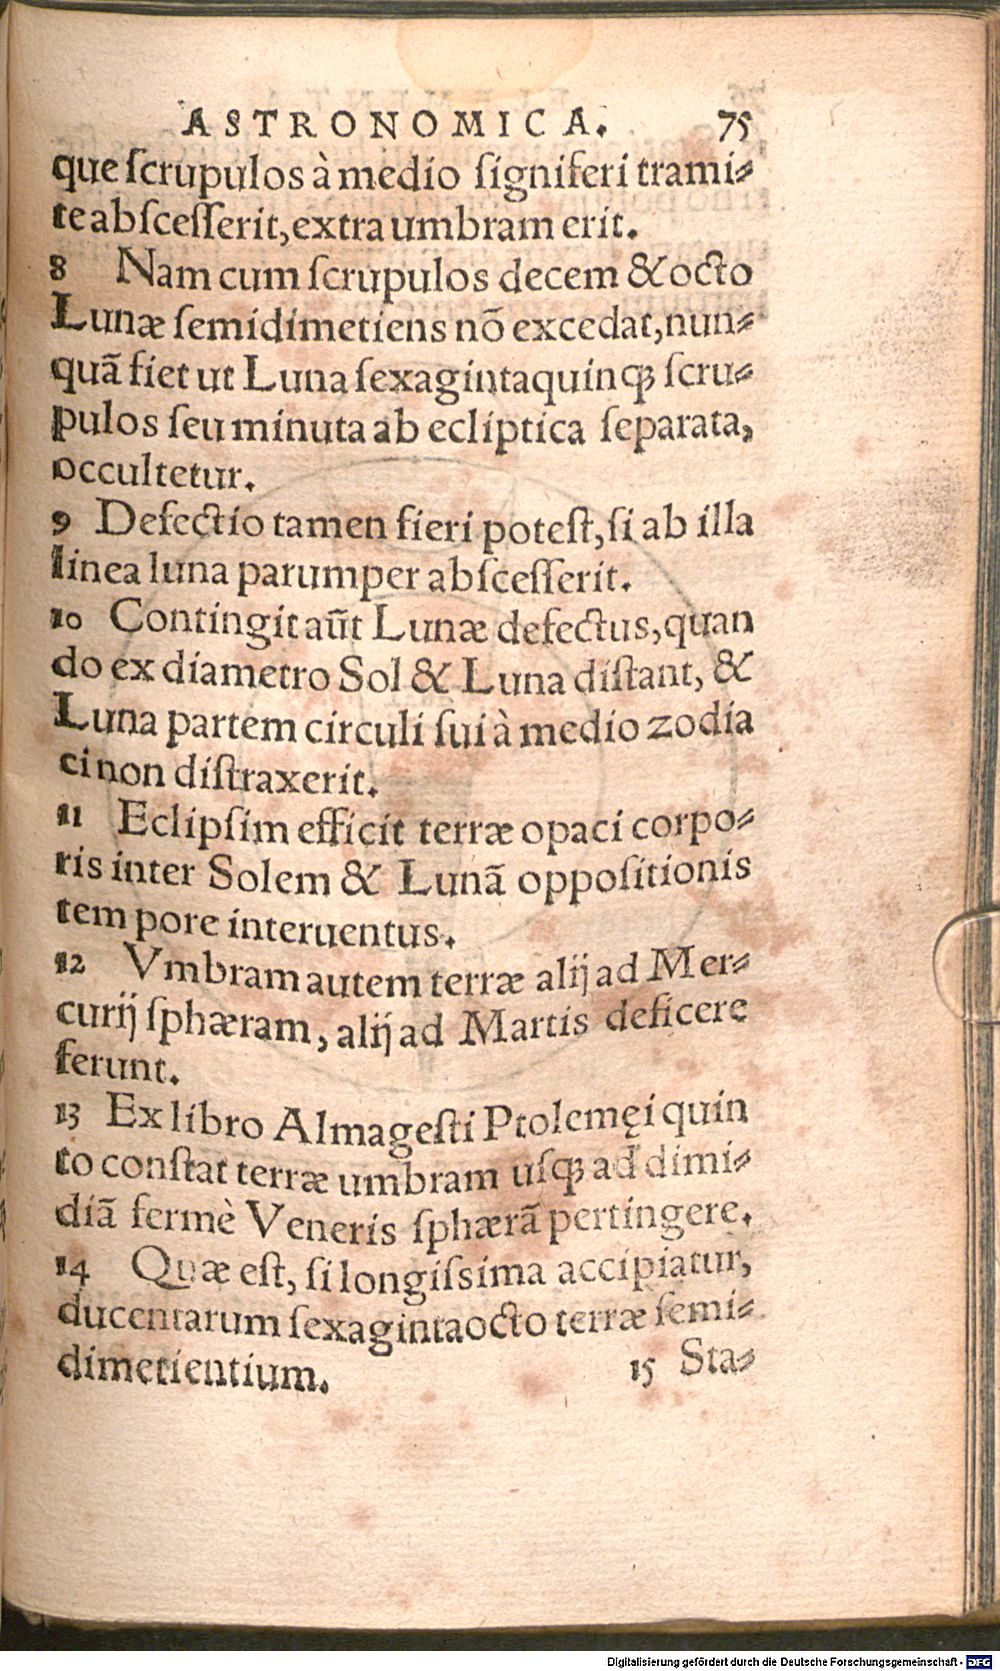 ASTRONOMICA. 75
que ſcrupulos à medio ſigniferi trami⸗
te abſceſſerit, extra umbram erit.
8 Nam cum ſcrupulos decem & octo
Lunæ ſemidimetiens nõ excedat, nun⸗
quã fiet ut Luna ſexagintaquinqꝫ ſcru⸗
pulos ſeu minuta ab ecliptica ſeparata,
occultetur.
9 Defectio tamen fieri poteſt, ſi ab illa
linea luna parumper abſceſſerit.
10 Contingit aũt Lunæ defectus, quan
do ex diametro Sol & Luna diſtant, &
Luna partem circuli ſui à medio zodia
ci non diſtraxerit.
11 Eclipſim efficit terræ opaci corpo⸗
ris inter Solem & Lunã oppoſitionis
tempore interuentus.
12 Vmbram autem terræ alij ad Mer⸗
curij ſphæram, alij ad Martis deficere
ferunt.
13 Ex libro Almageſti Ptolemęi quin
to conſtat terræ umbram uſqꝫ ad dimi⸗
diã fermè Veneris ſphærã pertingere.
14 Quæ eſt, ſi longiſsima accipiatur,
ducentarum ſexagintaocto terræ ſemi⸗
dimetientium. 15 Sta⸗
Digitalisierung gefördert durch die Deutsche Forschungsgemeinschaft - DFG